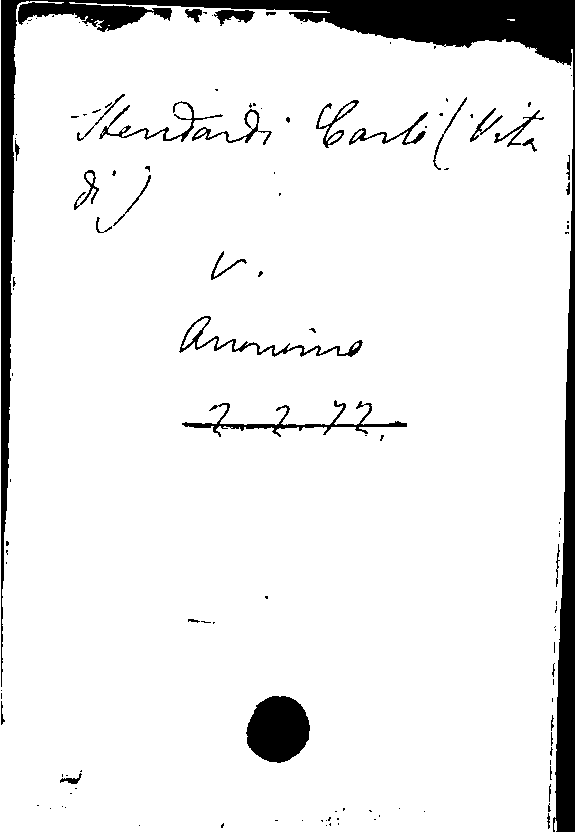 Stendardi Carlo (Vita
di)
v.
Anonimo
2.2.72.